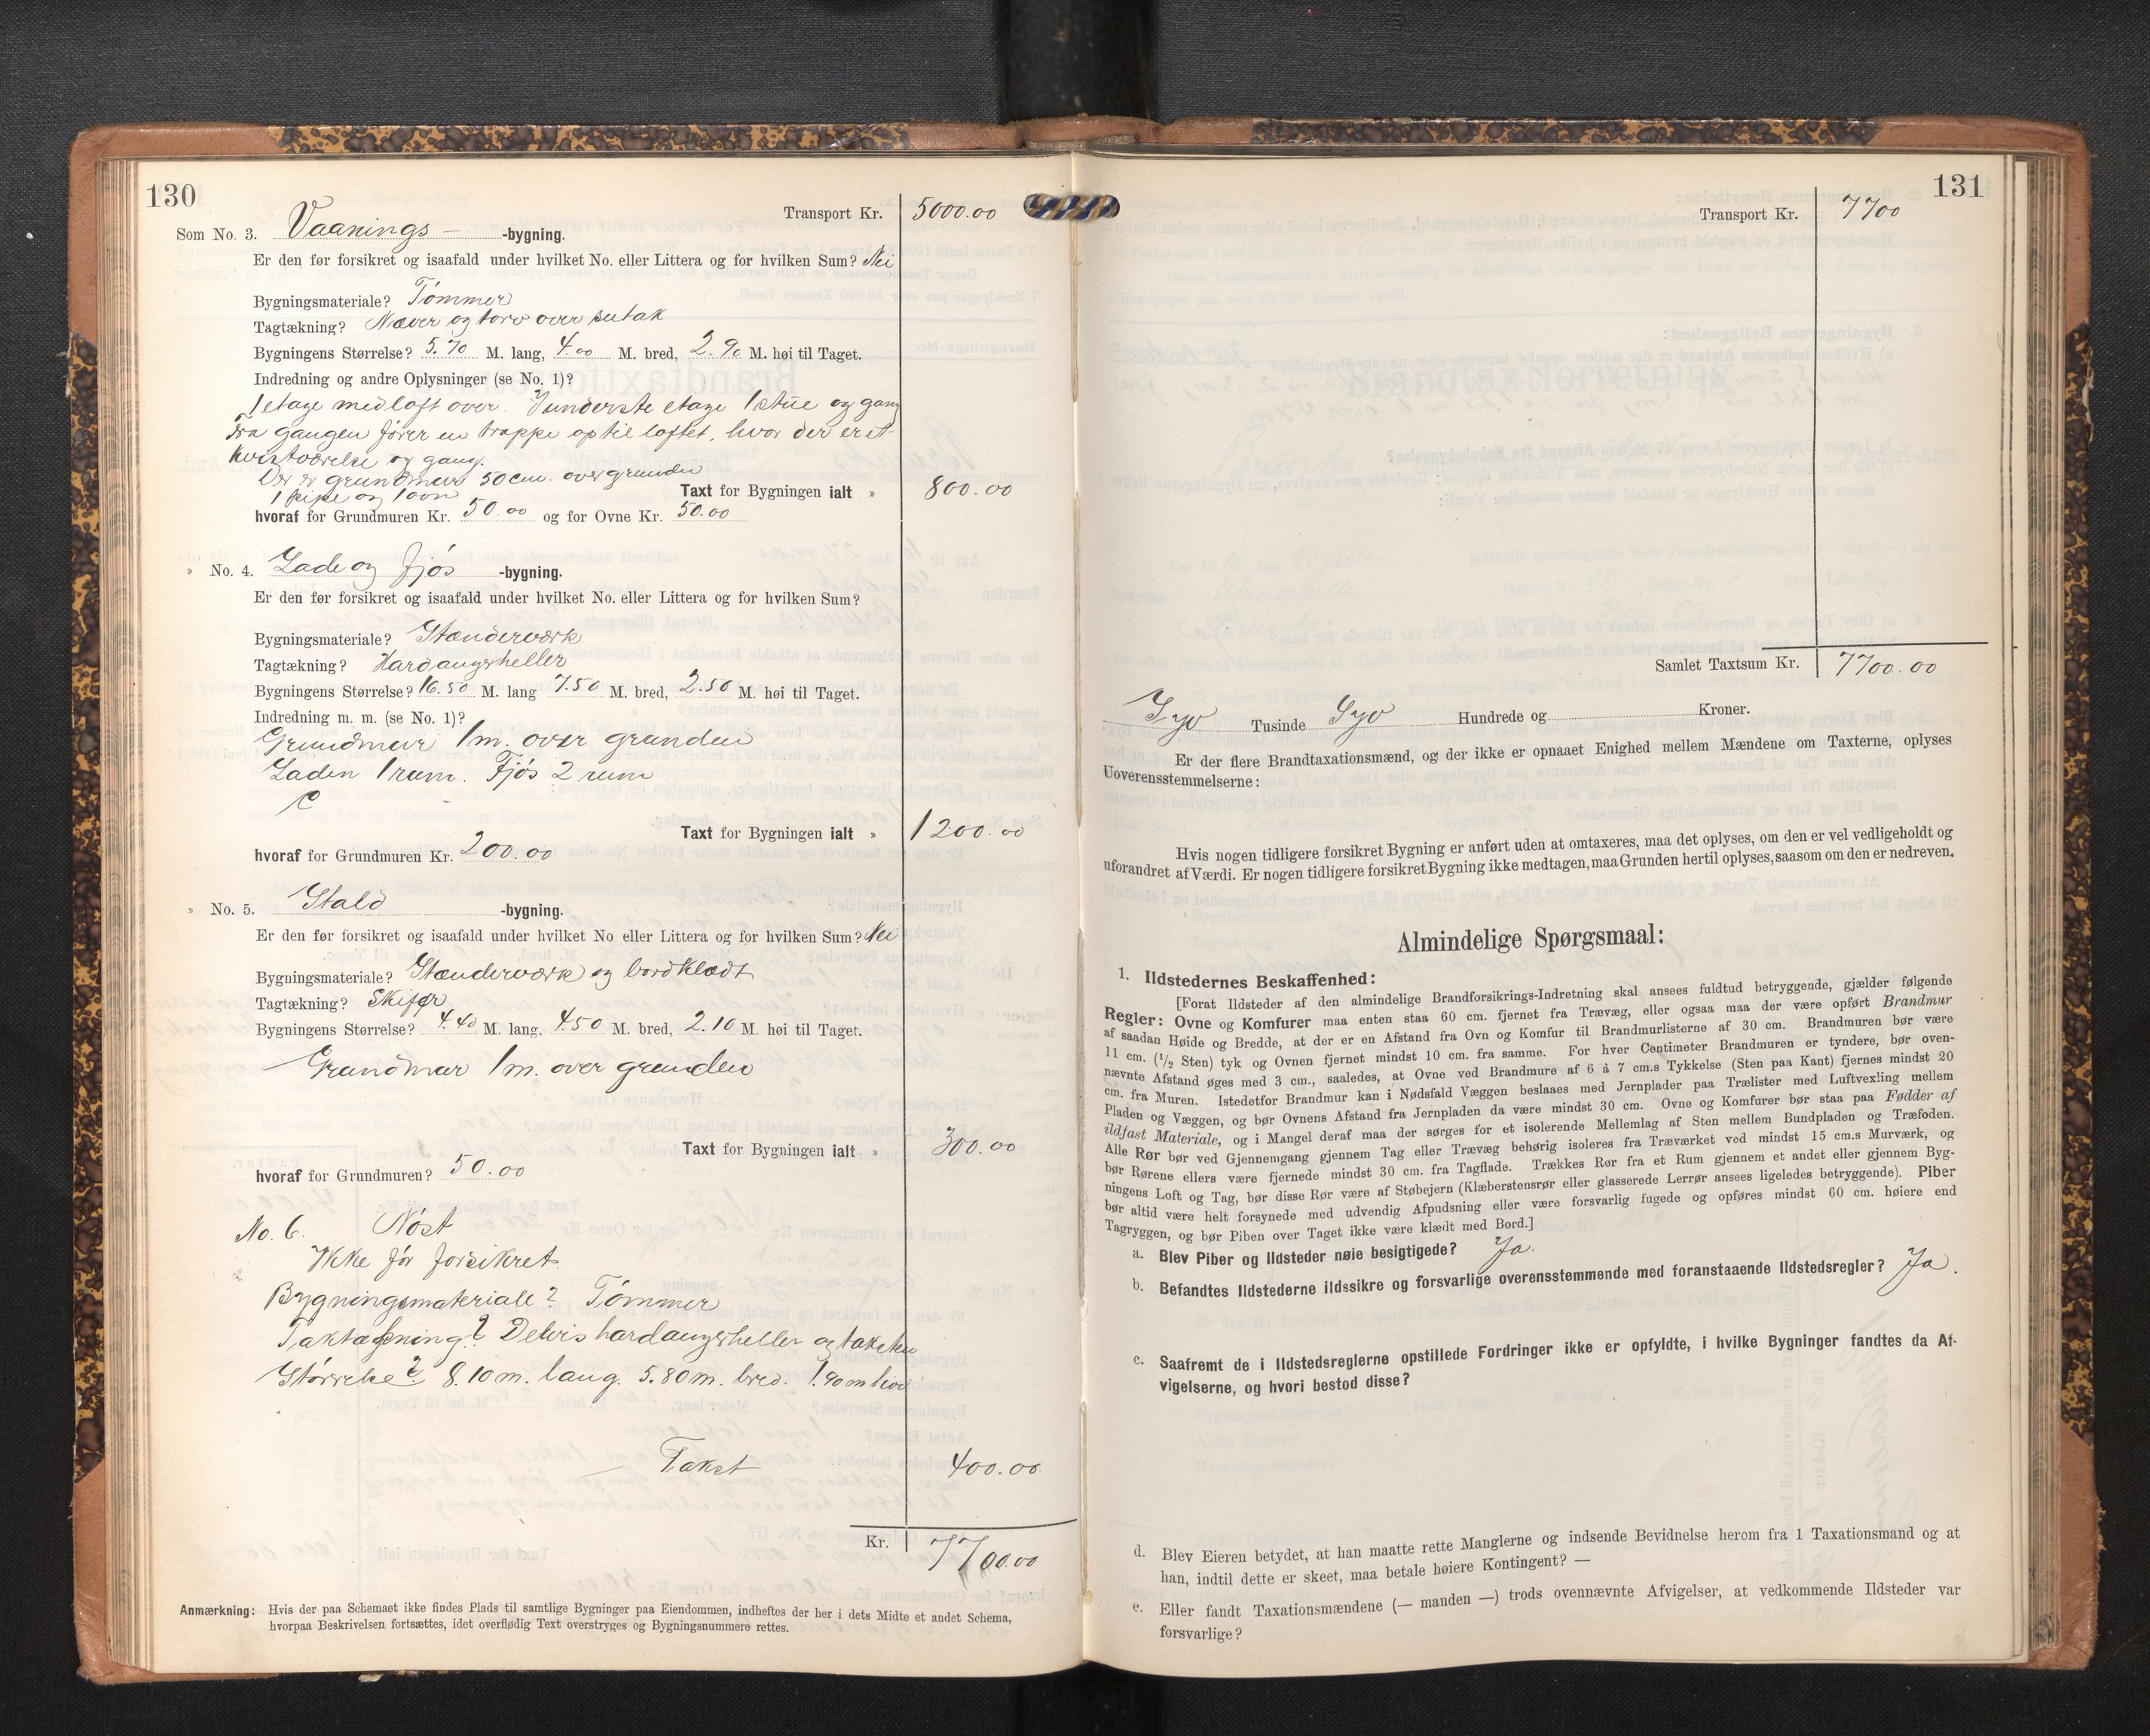 130
Transport Kr. 5000.00
Som No. 3. Vaanings- -bygning.
Er den før forsikret og isaafald under hvilket No. eller Littera og for hvilken Sum? Nei
Bygningsmateriale? Tömmer
Tagtækning? Næver og torv over sutak
Bygningens Størrelse? 5.70 M. lang, 4.00 M. bred, 2.90 M. høi til Taget.
Indredning og andre Oplysninger (se No. 1)?
1 etage med loft over. I underste etage 1 stue og gang
Fra gangen förer en trappe op til loftet, hvor der er et
kvistværelse og gang.
Der er grundmur 50 cm. over grunden
1 pipe og 1 ovn
Taxt for Bygningen ialt » 800.00
hvoraf for Grundmuren Kr. 50.00 og for Ovne Kr. 50.00
» No. 4. Lade og fjös -bygning.
Er den før forsikret og isaafald under hvilket No. eller Littera og for hvilken Sum?
Bygningsmateriale? Stænderværk
Tagtækning? Hardangerheller
Bygningens Størrelse? 16.50 M. lang 7.50 M. bred, 2.50 M. høi til Taget.
Indredning m. m. (se No. 1)?
Grundmur 1 m. over grunden
Laden 1 rum. Fjös 2 rum
Taxt for Bygningen ialt » 1200.00
hvoraf for Grundmuren Kr. 200.00
» No. 5. Stald -bygning.
Er den før forsikret og isaafald under hvilket No eller Littera og for hvilken Sum? Nei
Bygningsmateriale? Stænderværk og bordklædt
Tagtækning? Skifer
Bygningens Størrelse? 4.40 M. lang, 4.50 M. bred, 2.10 M. høi til Taget.
Grundmur 1 m. over grunden
Taxt for Bygningen ialt » 300.00
hvoraf for Grundmuren? 50.00
No. 6. Nöst
Ikke för forsikret
Bygningsmateriale? Tömmer
Taktækning? Delvis hardangerheller og taksten
Störrelse? 8.10 m. lang. 5.80 m. bred. 1.90 m höi
Takst 400.00
Kr. 7700.00
Anmærkning: Hvis der paa Schemaet ikke findes Plads til samtlige Bygninger paa Eiendommen, indheftes der her i dets Midte et andet Schema,
hvorpaa Beskrivelsen fortsættes, idet overflødig Text overstryges og Bygningsnummere rettes.
131
Transport Kr. 7700
Samlet Taxtsum Kr. 7700.00
Syv Tusinde Syv Hundrede og Kroner.
Er der flere Brandtaxationsmænd, og der ikke er opnaaet Enighed mellem Mændene om Taxterne, oplyses
Uoverensstemmelserne:
Hvis nogen tidligere forsikret Bygning er anført uden at omtaxeres, maa det oplyses, om den er vel vedligeholdt og
uforandret af Værdi. Er nogen tidligere forsikret Bygning ikke medtagen, maa Grunden hertil oplyses, saasom om den er nedreven.
Almindelige Spørgsmaal:
1. Ildstedernes Beskaffenhed:
[Forat Ildsteder af den almindelige Brandforsikrings-Indretning skal ansees fuldtud betryggende, gjælder følgende
Regler: Ovne og Komfurer maa enten staa 60 cm. fjernet fra Trævæg, eller ogsaa maa der være opført Brandmur
af saadan Høide og Bredde, at der er en Afstand fra Ovn og Komfur til Brandmurlisterne af 30 cm. Brandmuren bør være
11 cm. (1/2 Sten) tyk og Ovnen fjernet mindst 10 cm. fra samme. For hver Centimeter Brandmuren er tyndere, bør oven-
nævnte Afstand øges med 3 cm., saaledes, at Ovne ved Brandmure af 6 à 7 cm.s Tykkelse (Sten paa Kant) fjernes mindst 20
cm. fra Muren. Istedetfor Brandmur kan i Nødsfald Væggen beslaaes med Jernplader paa Trælister med Luftvexling mellem
Pladen og Væggen, og bør Ovnens Afstand fra Jernpladen da være mindst 30 cm. Ovne og Komfurer bør staa paa Fødder af
ildfast Materiale, og i Mangel deraf maa der sørges for et isolerende Mellemlag af Sten mellem Bundpladen og Træfoden.
Alle Rør bør ved Gjennemgang gjennem Tag eller Trævæg behørig isoleres fra Træværket ved mindst 15 cm.s Murværk, og
bør Rørene ellers være fjernede mindst 30 cm. fra Tagflade. Trækkes Rør fra et Rum gjennem et andet eller gjennem Byg-
ningens Loft og Tag, bør disse Rør være af Støbejern (Klæberstensrør eller glasserede Lerrør ansees ligeledes betryggende). Piber
bør altid være helt forsynede med udvendig Afpudsning eller være forsvarlig fugede og opføres mindst 60 cm. høiere end
Tagryggen, og bør Piben over Taget ikke være klædt med Bord.]
a. Blev Piber og Ildsteder nøie besigtigede? Ja.
b. Befandtes Ildstederne ildssikre og forsvarlige overensstemmende med foranstaaende Ildstedsregler? Ja.
c. Saafremt de i Ildstedsreglerne opstillede Fordringer ikke er opfyldte, i hvilke Bygninger fandtes da Af-
vigelserne, og hvori bestod disse?
d. Blev Eieren betydet, at han maatte rette Manglerne og indsende Bevidnelse herom fra 1 Taxationsmand og at
han, indtil dette er skeet, maa betale høiere Kontingent? —
e. Eller fandt Taxationsmændene (— manden —) trods ovennævnte Afvigelser, at vedkommende Ildsteder var
forsvarlige?